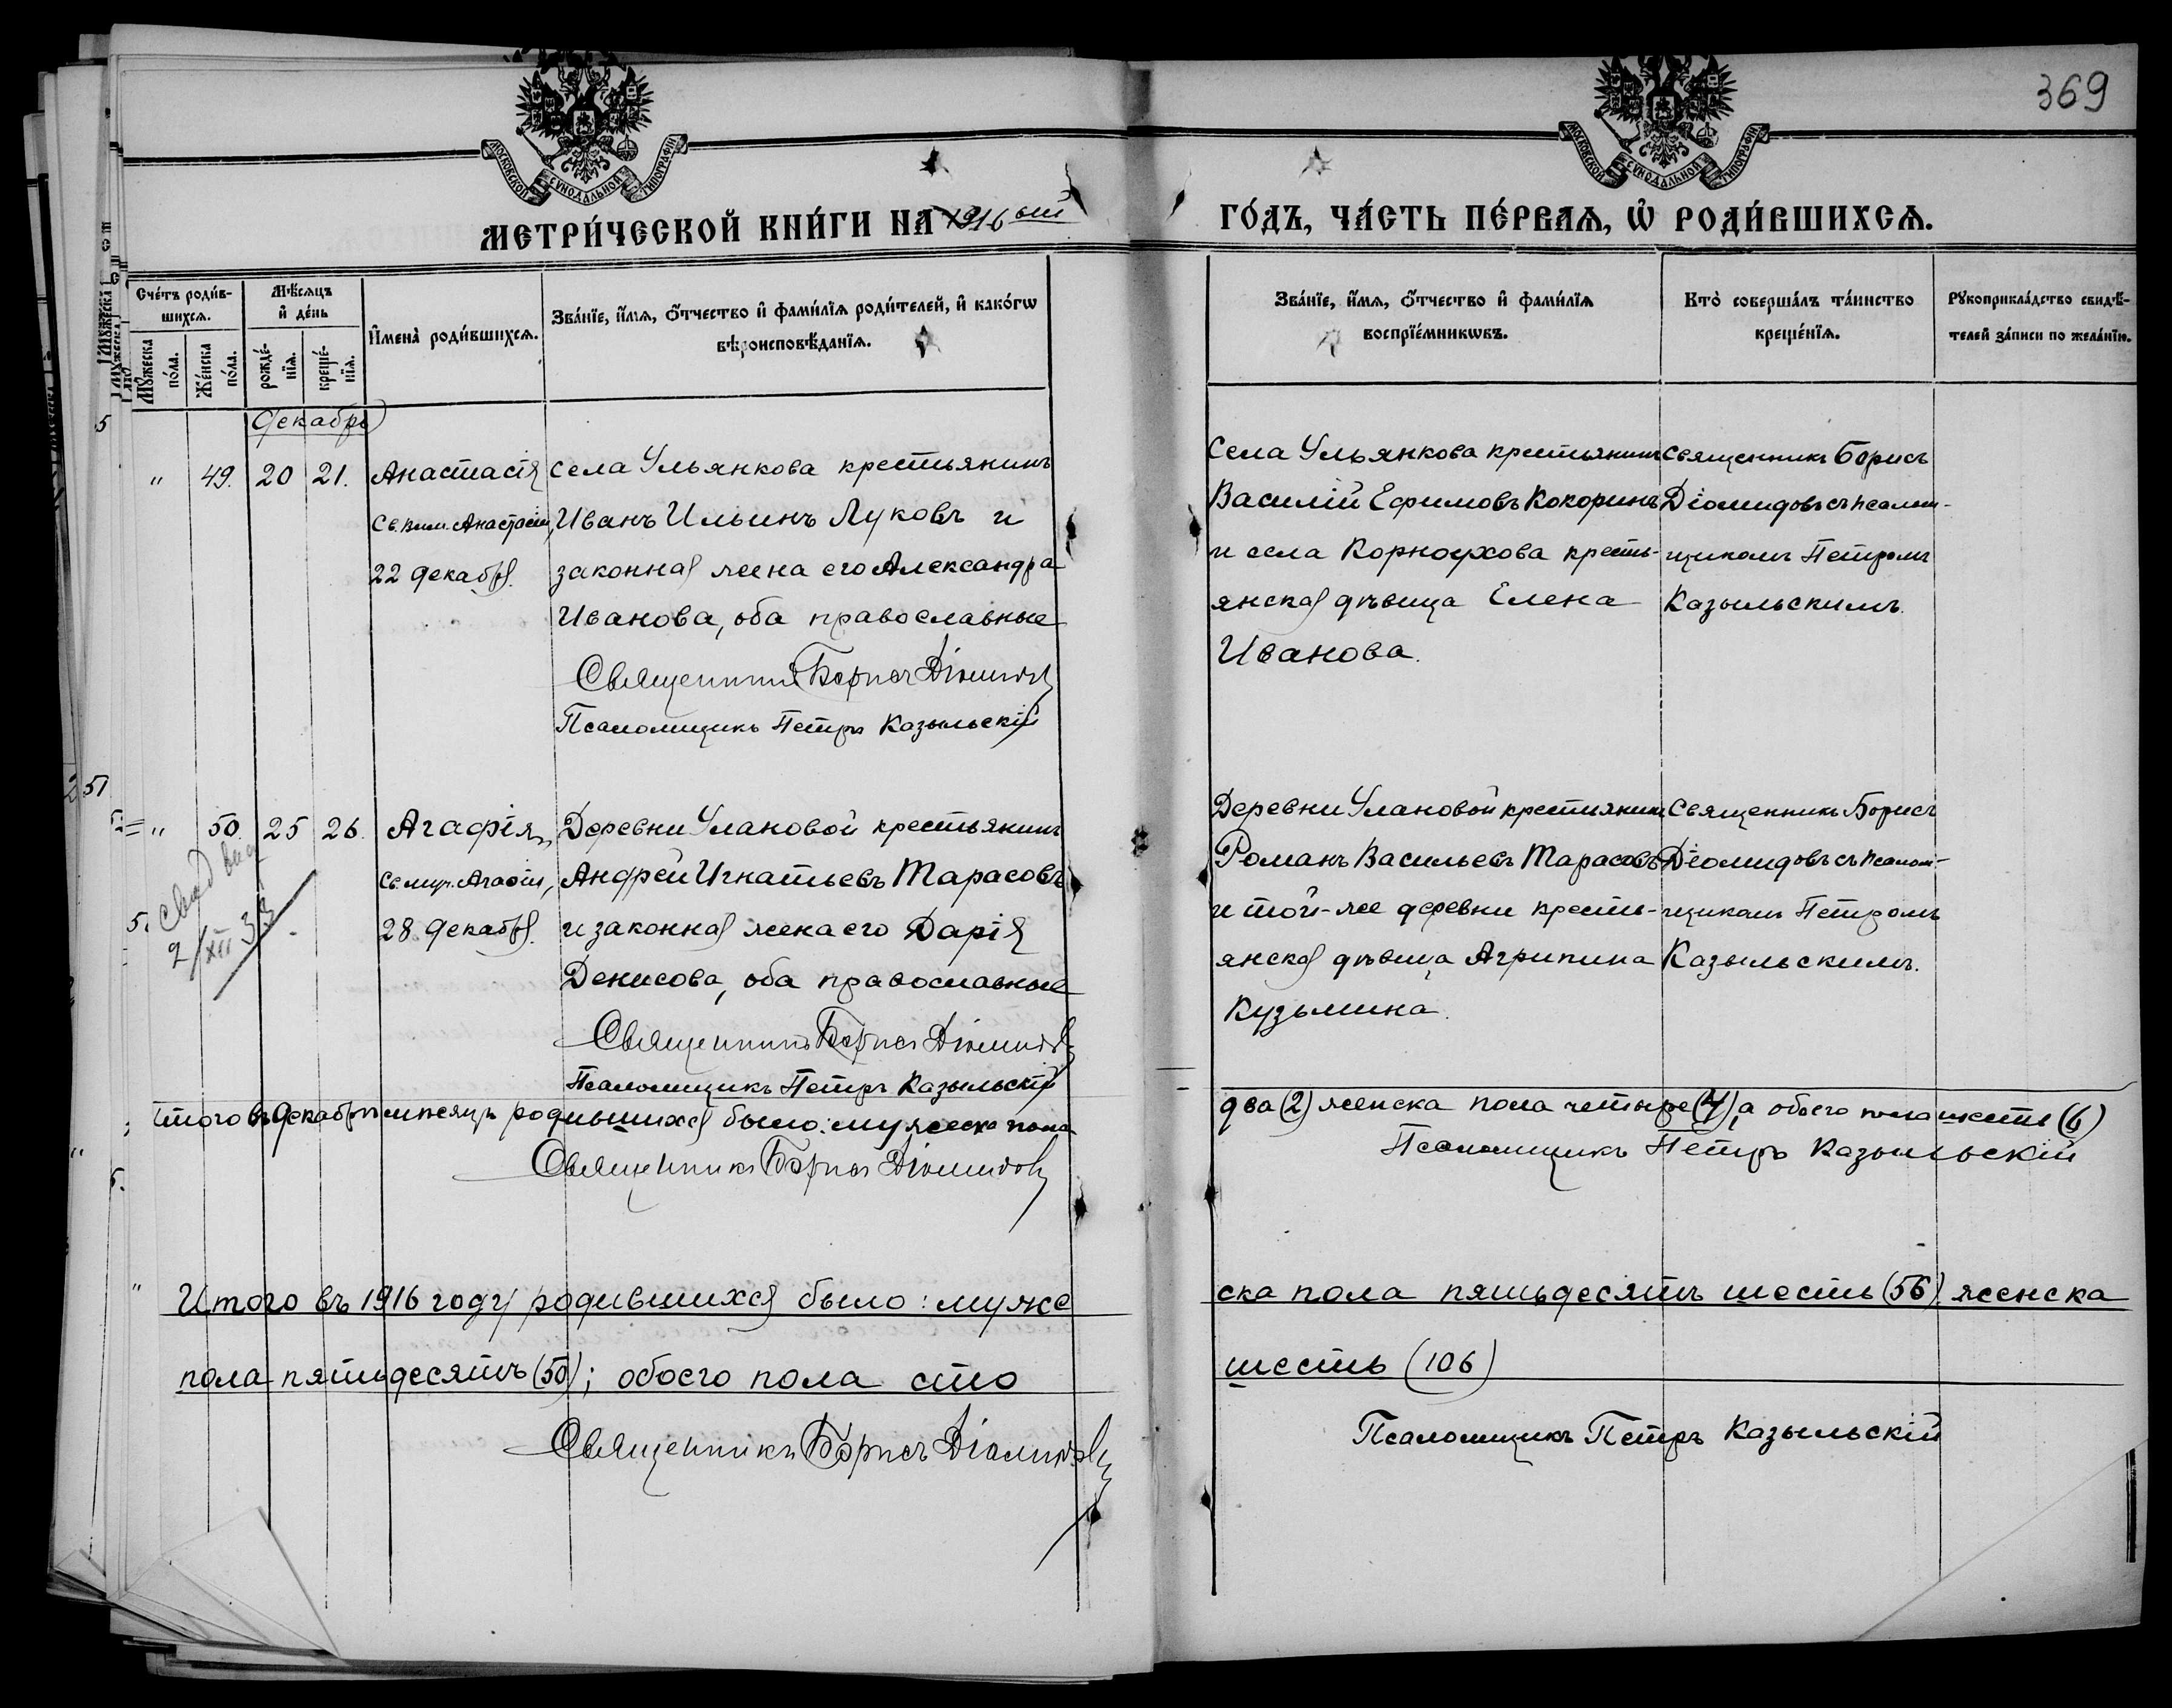 369
МОСКОВСКОЙ СѴНОДАЛЬНОЙ ТИПОГРАФІИ
МОСКОВСКОЙ СѴНОДАЛЬНОЙ ТИПОГРАФІИ
МЕТРИ́ЧЕСКОЙ КНИ́ГИ НА 1916ый
ГО́ДЪ, ЧА́СТЬ ПЕ́РВАѦ, Ѡ҆ РОДИ́ВШИХСѦ.
Сче́тъ роди́в-
шихсѧ.
Мꙋ́жеска
по́ла.
Же́нска
по́ла.
Мѣ́сѧцъ
и҆ де́нь
рожде́-
нїѧ.
креще́-
нїѧ.
И҆мена̀ роди́вшихсѧ.
Зва́нїе, и҆́мѧ, ѻ҆́тчество и҆ фами́лїѧ роди́телей, и҆ како́гѡ
вѣроисповѣ́данїѧ.
Зва́нїе, и҆́мѧ, ѻ҆́тчество и҆ фами́лїѧ
воспрїе́мникѡвъ.
Кто̀ соверша́лъ та́инство
креще́нїѧ.
Рꙋкоприкла́дство свидѣ́-
телей за́писи по жела́нїю.
Декабрь
" 49. 20 21.
Анастасія
Св. вмч. Анастасіи,
22 декабря.
Села Ульянкова крестьянинъ
Иванъ Ильинъ Луковъ и
законная жена его Александра
Иванова, оба православные
Священникъ Борисъ Діомидовъ
Псаломщикъ Петръ Казыльскій
Села Ульянкова крестьянинъ
Василій Ефимовъ Кокоринъ
и села Корноухова кресть-
янская дѣвица Елена
Иванова.
Священникъ Борисъ
Діомидовъ съ псалом-
щикомъ Петромъ
Казыльскимъ.
" 50. 25 26.
Агафія,
Св. муч. Агафіи,
28 декабря.
Деревни Улановой крестьянинъ
Андрей Игнатьевъ Тарасовъ
и законная жена его Дарія
Денисова, оба православные
Священникъ Борисъ Діомидовъ
Псаломщикъ Петръ Казыльскій
2/XII 33
Деревни Улановой крестьянинъ
Романъ Васильевъ Тарасовъ
и той-же деревни кресть-
янская дѣвица Агрипина
Кузьмина.
Священникъ Борисъ
Діомидовъ съ псалом-
щикомъ Петромъ
Казыльскимъ.
Итого въ Декабрѣ мѣсяцѣ родившихся было: мужеска пола
два (2) женска пола четыре (4), а обоего пола шесть (6)
Священникъ Борисъ Діомидовъ
Псаломщикъ Петръ Казыльскій
Итого въ 1916 году родившихся было: муже
ска пола пятьдесятъ шесть (56) женска
пола пятьдесятъ (50); обоего пола сто
шесть (106)
Священникъ Борисъ Діомидовъ
Псаломщикъ Петръ Казыльскій